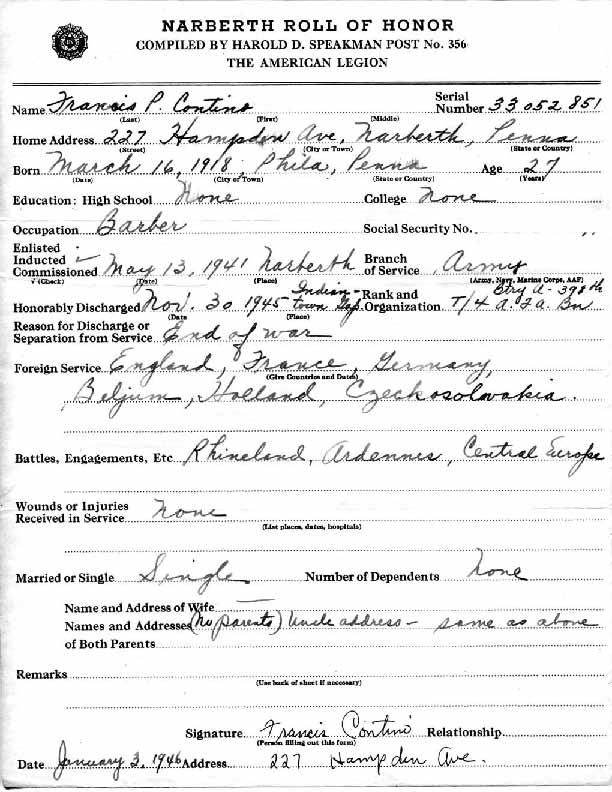 NARBERTH ROLL OF HONOR
COMPILED BY HAROLD D. SPEAKMAN POST No. 356
THE AMERICAN LEGION
Name Francis P. Contino Serial Number 33 052 851
(Last) (First) (Middle)
Home Address 227 Hampden Ave, Narberth, Penna
(Street) (City or Town) (State or Country)
Born March 16, 1918, Phila, Penna Age 27
(Date) (City or Town) (State or Country) (Years)
Education: High School None College None
Occupation Barber Social Security No.
Enlisted
Inducted
Commissioned May 13, 1941 Narberth Branch of Service Army
√ (Check) (Date) (Place) (Army, Navy, Marine Corps, AAF)
Honorably Discharged Nov. 30 1945 Indian-town Gap Rank and Organization T/4 Btry A-398th A. F.A. Bn
(Date (Place)
Reason for Discharge or
Separation from Service End of war
Foreign Service England, France, Germany,
(Give Countries and Dates)
Beljium, Holland, Czeckosolovakia.
Battles, Engagements, Etc. Rhineland, Ardennes, Central Europe
Wounds or Injuries
Received in Service none
(List places, dates, hospitals)
Married or Single Single Number of Dependents None
Name and Address of Wife
Names and Addresses (No parents) Uncle address - same as above
of Both Parents
Remarks
(Use back of sheet if necessary)
Signature Francis Contino Relationship
(Person filling out this form)
Date January 3, 1946 Address 227 Hampden Ave.